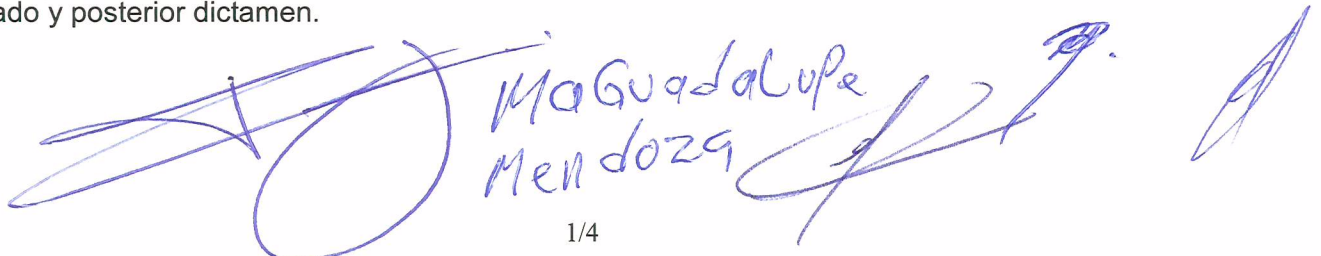 ado y posterior dictamen.
Ma Guadalupe
Mendoza
1/4